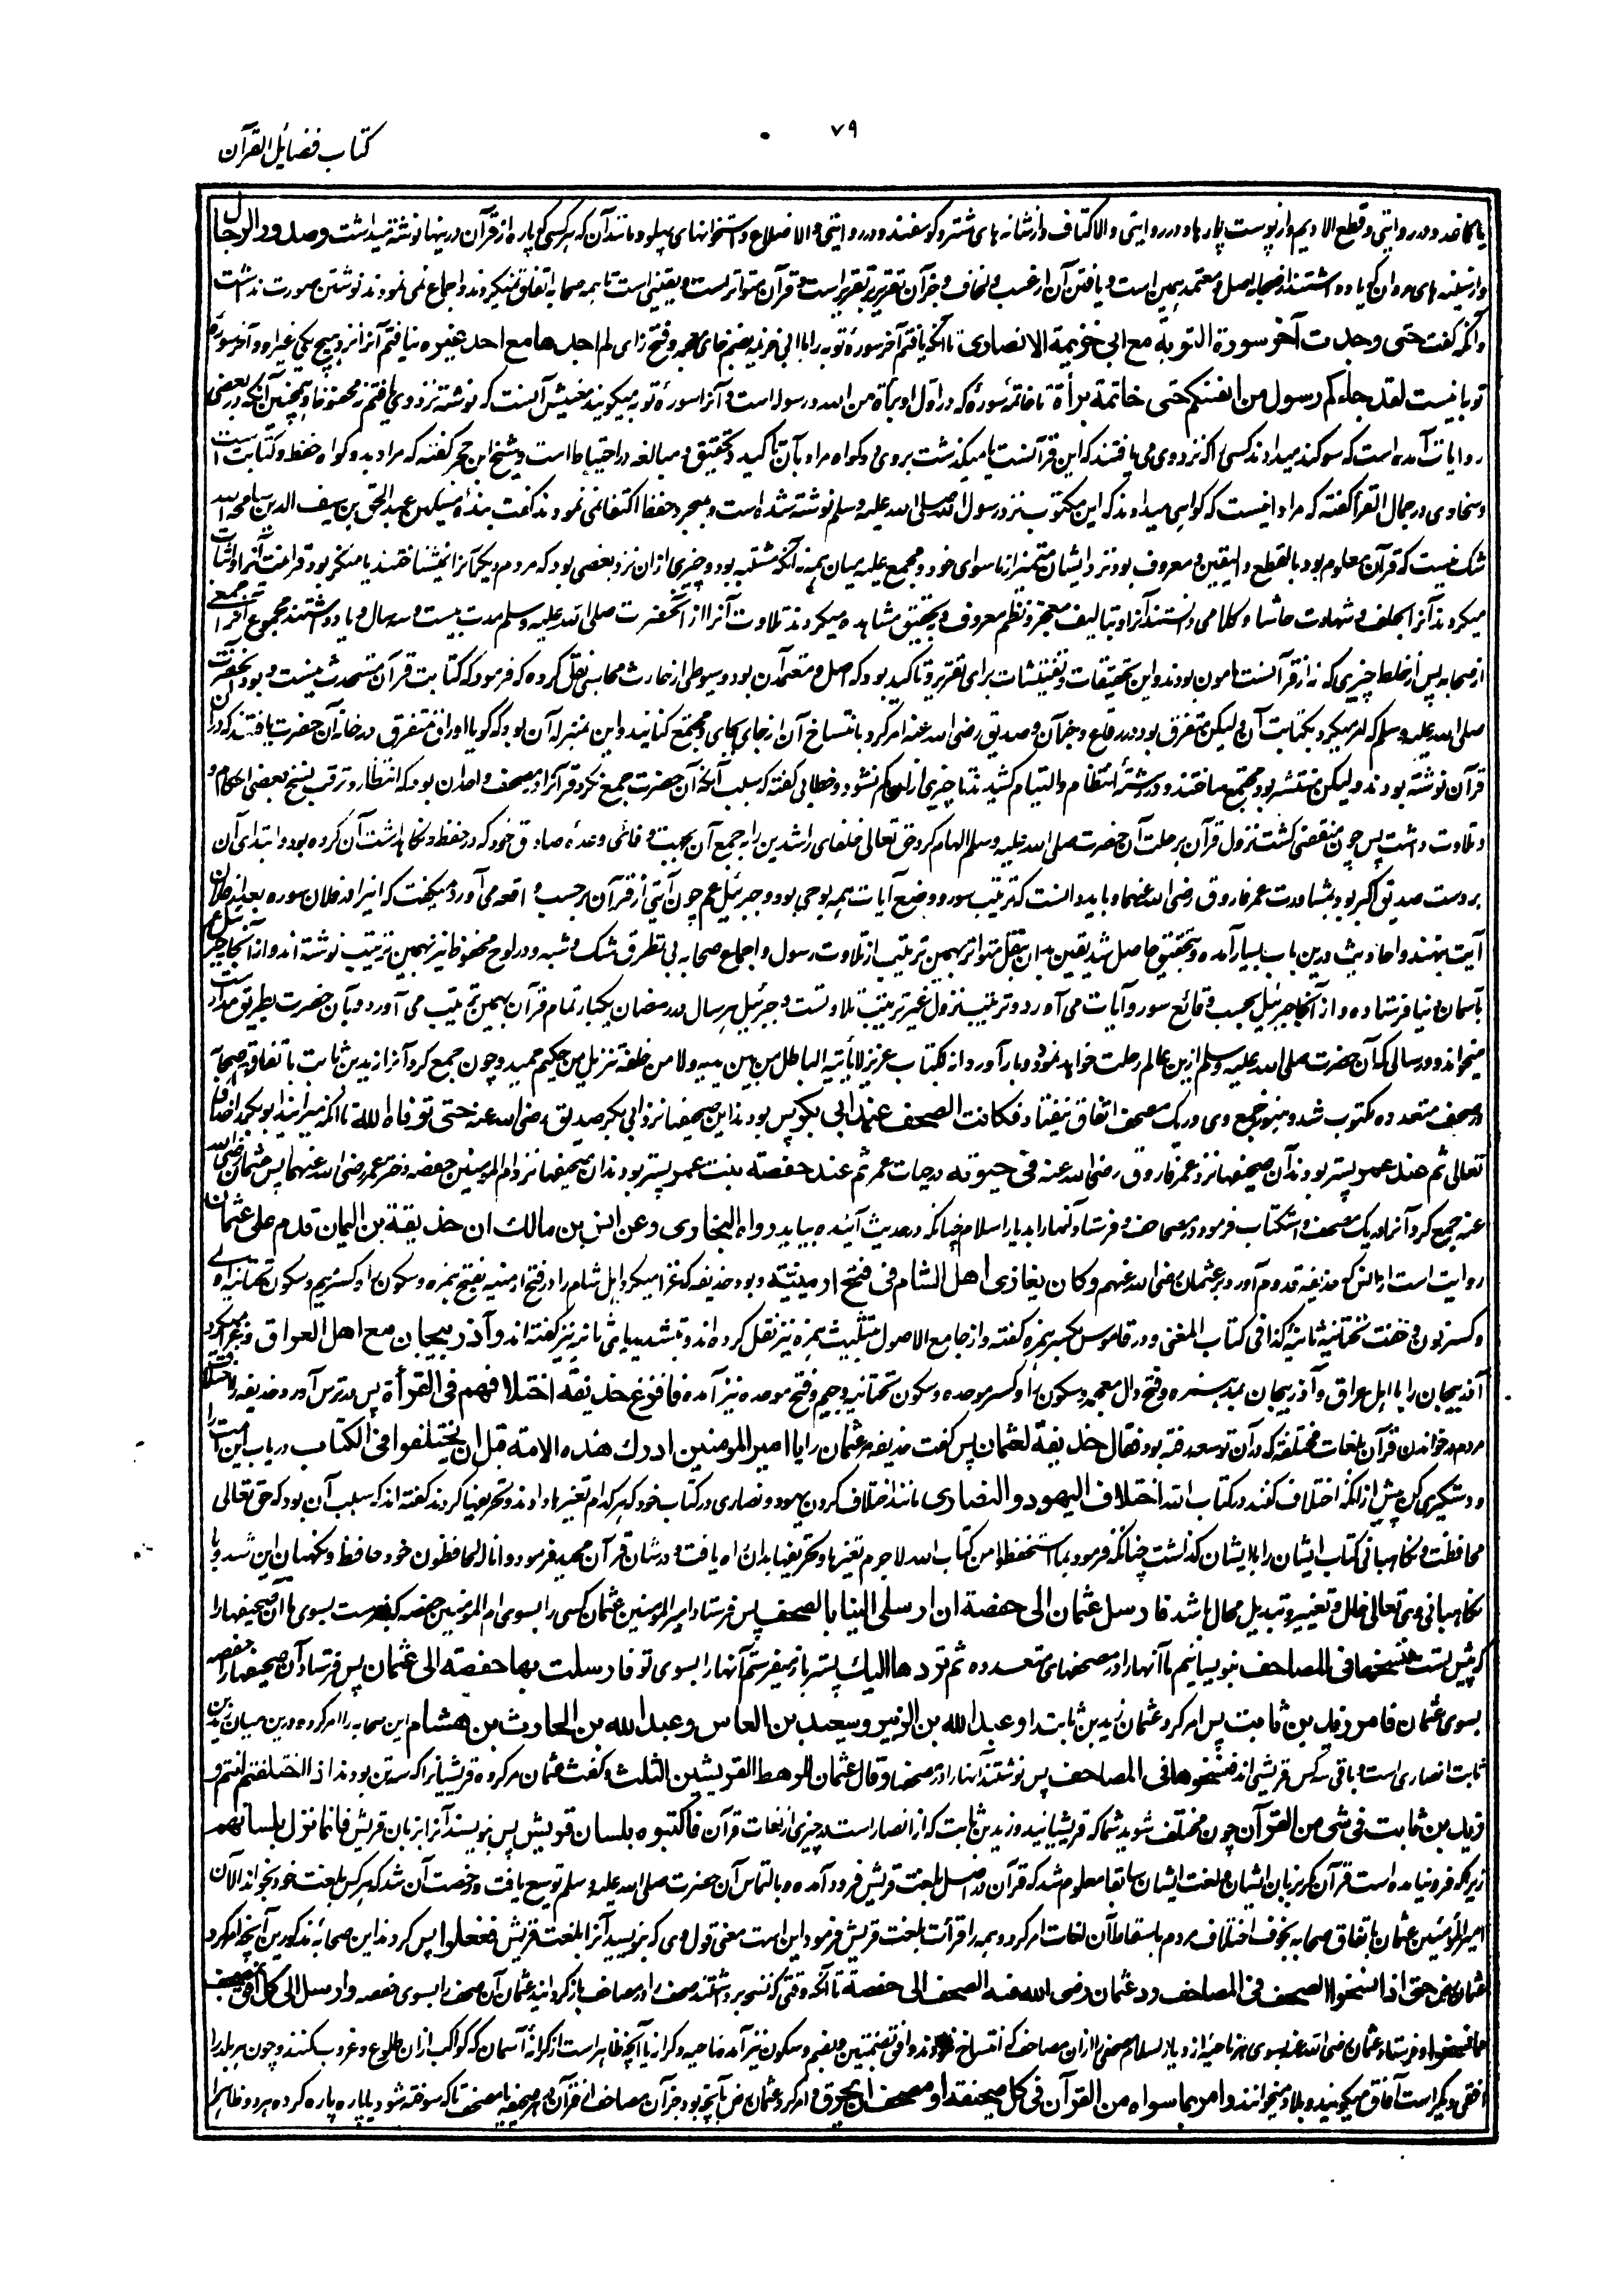 ۷۹
کتاب فضایل القرآن
یا کاغذ و در روایتی و قطع الادیم و از پوست پارها و در روایتی والاکتاف و از شانه های شتر و گوسفند و در روایتی والاضلاع و استخوانهای پهلو و مانند آن که هر کسی که پاره از قرآن در ینها نوشته میداشت وصدور الرجال
و از سینه های مردان که یاد داشتند از صحابه اصل و معتمد همین است و یافتن آن از عسب و لخاف و جز آن تقریر بر تقریر است و قرآن متواتر است و یقینی است تا همه صحابه اتفاق نمیکردند و اجماع نمی نمودند نوشتن صورت نداشت
و آنکه گفت حتی وجدت آخر سورة التوبة مع ابی خزیمة الانصاری تا آنکه یافتم آخر سورهٔ توبه را با ابی خزیمه بضم خای معجمه و فتح زای لم اجدها مع احد غیره نیافتم آنرا نزد هیچ یکی غیر او و آخر سورهٔ
توبه اینست لقد جاءکم رسول من انفسکم حتی خاتمة براة تا خاتمه سورهٔ که در اول او براة من الله و رسوله است و آنرا سورهٔ توبه میگویند معنیش آنست که نوشته نزد وی یافتم نه محفوظ و همچنین آنکه در بعضی
روایات آمده است که سوگند میدادند کسی را که نزد وی می یافتند که این قرآنست یا میگذشت بروی دو گواه مراد بآن تاکید و تحقیق و مبالغه در احتیاط است و شیخ ابن حجر گفته که مراد بدو گواه حفظ و کتابت است
و سخاوی در جمال القرا گفته که مراد اینست که گواهی میدادند که این مکتوب نزد رسول الله صلی الله علیه وسلم نوشته شده است و بمجرد حفظ اکتفا نمی نمودند گفت بندهٔ مسکین عبد الحق بن سیف الدین سامحه الله
شک نیست که قرآن معلوم بود بالقطع والیقین و معروف بود نزد ایشان متمیز از ماسوای خود و مجمع علیه میان همه نه آنکه مشتبه بود و چیزی ازان نزد بعضی بود که مردم دیگر آنرا نمیشناختند یا منکر بود قرآنیت آنرا و اثبات
میکردند آنرا بحلف و شهادت حاشا و کلا می دانستند آنرا و بتالیف معجز و نظم معروف و بتحقیق مشاهده میکردند تلاوت آنرا از آنحضرت صلی الله علیه وسلم مدت بیست و سه سال و یاد داشتند مجموع آنرا جمعی
از صحابه پس از خلط چیزی که نه از قرآنست مامون بودند و این تحقیقات و تفتیشات برای تقریر و تاکید بود که اصل و معتمد آن بود و سیوطی از حارث محاسبی نقل کرده که فرمود که کتابت قرآن محدث نیست و بود آنحضرت
صلی الله علیه وسلم که امر میکرد بکتابت آن ولیکن متفرق بود در رقاع و جز آن و صدیق رضی الله عنه امر کرد بانتساخ آن از جای بجای و مجتمع گنانید و این بمنزله آن بود که گویا اوراق متفرق در خانه آن حضرت یافتند که در آن
قرآن نوشته بودند ولیکن منتشر بود مجتمع ساختند و در رشتهٔ انتظام و التیام کشیدند تا چیزی ازان کم نشود و خطابی گفته که سبب آنکه آن حضرت جمع نکرد قرآنرا در مصحف واحد آن بود که انتظار و ترقب نسخ بعضی احکام و
و تلاوت داشت پس چون منقضی گشت نزول قرآن برحلت آن حضرت صلی الله علیه وسلم الهام کرد حق تعالی خلفای راشدین را به جمع آن بجهت وفای وعدهٔ صادق خود که در حفظ و نگاهداشت آن کرده بود و ابتدای آن
بر دست صدیق اکبر بود بمشاورت عمر فاروق رضی الله عنهما و باید دانست که ترتیب سور و وضع آیات همه بوحی بود و جبرئیل عم چون آیتی از قرآن برحسب واقعه می آورد میگفت که اینرا در فلان سوره بعد از فلان
آیت بنهند و احادیث درین باب بسیار آمده و بتحقیق حاصل شد یقین بدان بنقل متواتر بهمین ترتیب از تلاوت رسول و اجماع صحابه بی تطرق شک و شبه و در لوح محفوظ نیز بهمین ترتیب نوشته اند و از آنجا جبرئیل عم
بآسمان دنیا فرستاده و از آنجا جبرئیل بحسب وقائع سور و آیات می آورد و ترتیب نزول غیر ترتیب تلاوتست و جبرئیل هر سال در رمضان یکبار تمام قرآن بهمین ترتیب می آورد و بآن حضرت بطریق مدارست
میخواند و در سالی که آن حضرت صلی الله علیه وسلم ازین عالم رحلت خواهد نمود دو بار آورد وانه لکتاب عزیز لا یاتیه الباطل من بین یدیه ولا من خلفه تنزیل من حکیم حمید و چون جمع کرد آنرا زید بن ثابت باتفاق صحابه
در صحف متعدده مکتوب شد و هنوز جمع وی در یک مصحف اتفاق نیفتاد فکانت الصحف عند ابی بکر پس بودند این صحیفها نزد ابی بکر صدیق رضی الله عنه حتی توفاه الله تا آنکه میرانید ابوبکر را خدا
تعالی ثم عند عمر پستر بودند آن صحیفها نزد عمر فاروق رضی الله عنه فی حیوته در حیات عمر ثم عند حفصة بنت عمر پستر بودند آن صحیفها نزد ام المومنین حفصه دختر عمر رضی الله عنهما پس عثمان رضی الله
عنه جمع کرد آنرا در یک مصحف و استکتاب فرمود در مصاحف و فرستاد آنها را بدیار اسلام چنانکه در حدیث آینده بیاید رواه البخاری وعن انس بن مالک ان حذیفة بن الیمان قدم علی عثمان
روایت است از انس که حذیفه قدوم آورد بر عثمان رضی الله عنهم وکان یغازی اهل الشام فی فتح ارمینیة و بود حذیفه که غزا میکرد اهل شام را در فتح ارمنیه بفتح همزه و سکون را و کسر میم و سکون تحتانیه اولی
و کسر نون و خفت تحتانیه ثانیه کذا فی کتاب المغنی و در قاموس بکسر همزه گفته و از جامع الاصول تثلیث همزه نیز نقل کرده اند و بتشدید یای ثانیه نیز گفته اند وآذربیجان مع اهل العراق و غزا میکرد
آذربیجان را با اهل عراق و آذربیجان بمد همزه و فتح ذال معجمه و سکون را و کسر موحده و سکون تحتانیه و جیم و فتح موحده نیز آمده فافزع حذیفة اختلافهم فی القرأة پس در ترس آورد حذیفه را اختلاف
مردم در خواندن قرآن بلغات مختلفه که در آن توسعه رفته بود فقال حذیفة لعثمان پس گفت حذیفه مر عثمان را یا امیر المومنین ادرک هذه الامة قبل ان یختلفوا فی الکتاب دریاب این امت را
و دستگیری کن پیش از آنکه اختلاف کنند در کتاب الله اختلاف الیهود والنصاری مانند اختلاف کردن یهود و نصاری در کتاب خود که هر کدام تغییرها دادند و تحریفها کردند گفته اند که سبب آن بود که حق تعالی
محافظت و نگاهبانی کتاب ایشان را بایشان گذاشت چنانکه فرمود بما استحفظوا من کتاب الله لاجرم تغیرها و تحریفها بدان راه یافت و در شان قرآن مجید فرمود وانا له لحافظون خود حافظ و نگهبان این شد و با
نگاهبانی وی تعالی خلل و تغییر و تبدیل محال باشد فارسل عثمان الی حفصة ان ارسلی الینا بالصحف پس فرستاد امیر المومنین عثمان کسی را بسوی ام المومنین حفصه که بفرست بسوی ما آن صحیفها را
که پیش تست ننسخها فی المصاحف بنویسانیم ما آنها را در مصحفهای متعدده ثم نردها الیک پستر باز میفرستم آنها را بسوی تو فارسلت بها حفصة الی عثمان پس فرستاد آن صحیفها را حفصه
بسوی عثمان فامر زید بن ثابت پس امر کرد عثمان زید بن ثابت را و عبد الله بن الزبیر وسعید بن العاص وعبد الله بن الحارث بن هشام این صحابه را امر کرد و درین میان زید بن
ثابت انصاری است و باقی سه کس قریشی اند فنسخوها فی المصاحف پس نوشتند آنها را در مصحفها وقال عثمان للرهط القریشیین الثلث و گفت عثمان مر گروه قریشیانرا که سه تن بودند اذا اختلفتم انتم و
زید بن ثابت فی شی من القرآن چون مختلف شوید شما که قریشیانید و زید بن ثابت که از انصار است در چیزی از لغات قرآن فاکتبوه بلسان قریش پس بنویسید آنرا بزبان قریش فانما نزل بلسانهم
زیرا که فرو نیامده است قرآن مگر بزبان ایشان و بلغت ایشان سابقا معلوم شد که قرآن در اصل بلغت قریش فرود آمده و بالتماس آن حضرت صلی الله علیه وسلم توسیع یافت و رخصت آن شد که هر کس بلغت خود بخواند الآن
امیر المؤمنین عثمان باتفاق صحابه بخوف اختلاف مردم باسقاط آن لغات امر کرد و همه را قرأت بلغت قریش فرمود این است معنی قول وی که بنویسید آنرا بلغت قریش ففعلوا پس کردند این صحابهٔ مذکورین آنچه امر کرد
عثمان رض حتی اذا نسخوا الصحف فی المصاحف رد عثمان رضی الله عنه الصحف الی حفصة تا آنکه وقتی که نسخه برداشتند صحف را در مصاحف باز گردانید عثمان آن صحف را بسوی حفصه وارسل الی کل افق بمصحف
مما نسخوا و فرستاد عثمان رضی الله عنه بسوی هر ناحیه از دیار اسلام مصحفی را ازان مصاحف که انتساخ نمودند و افق بضمتین و بضم و سکون نیز آمده ناحیه و کرانه یا آنچه ظاهر است از کرانهٔ آسمان که کواکب ازان طلوع و غروب میکنند و چون هر بلد را
افقی دیگر است آفاق میگویند و بلاد میخوانند وامر بما سواه من القرآن فی کل صحیفة او مصحف ان یحرق و امر کرد عثمان رض بآنچه بود جز آن مصاحف از قرآن در هر صحیفه یا مصحف تا که سوخته شود یا پاره پاره کرده شود و ظاهر